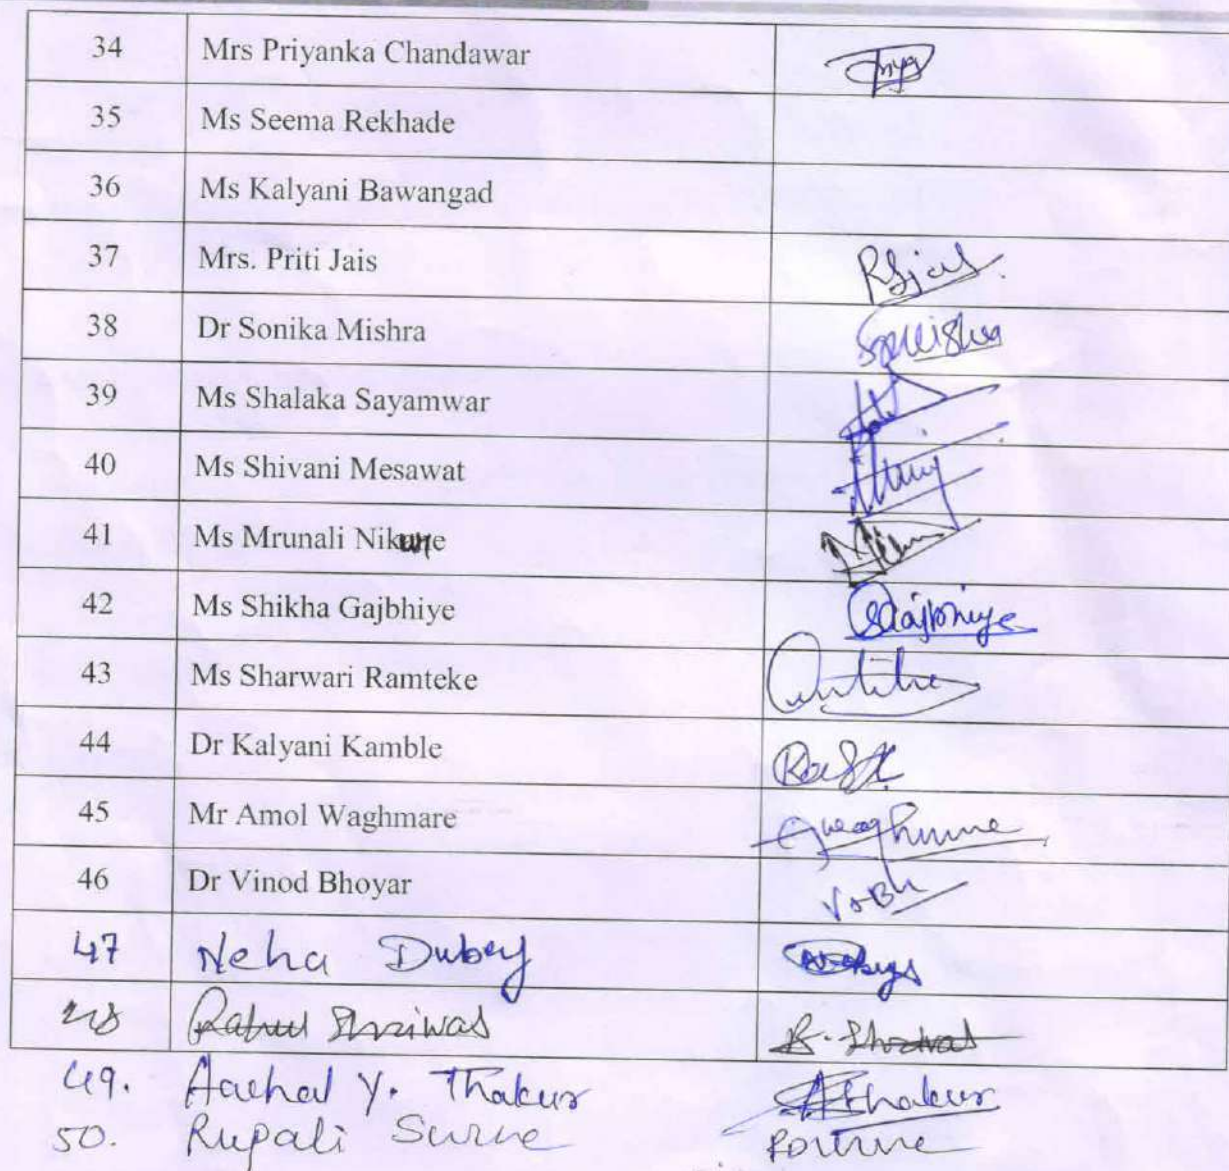 34 Mrs Priyanka Chandawar
35 Ms Seema Rekhade
36 Ms Kalyani Bawangad
37 Mrs. Priti Jais
38 Dr Sonika Mishra Smishra
39 Ms Shalaka Sayamwar
40 Ms Shivani Mesawat
41 Ms Mrunali Nikure
42 Ms Shikha Gajbhiye SGajbhiye
43 Ms Sharwari Ramteke
44 Dr Kalyani Kamble
45 Mr Amol Waghmare
46 Dr Vinod Bhoyar
47 Neha Dubey
48 Rahul Shriwas
49. Aachal Y. Thakur AThakur
50. Rupali Surve